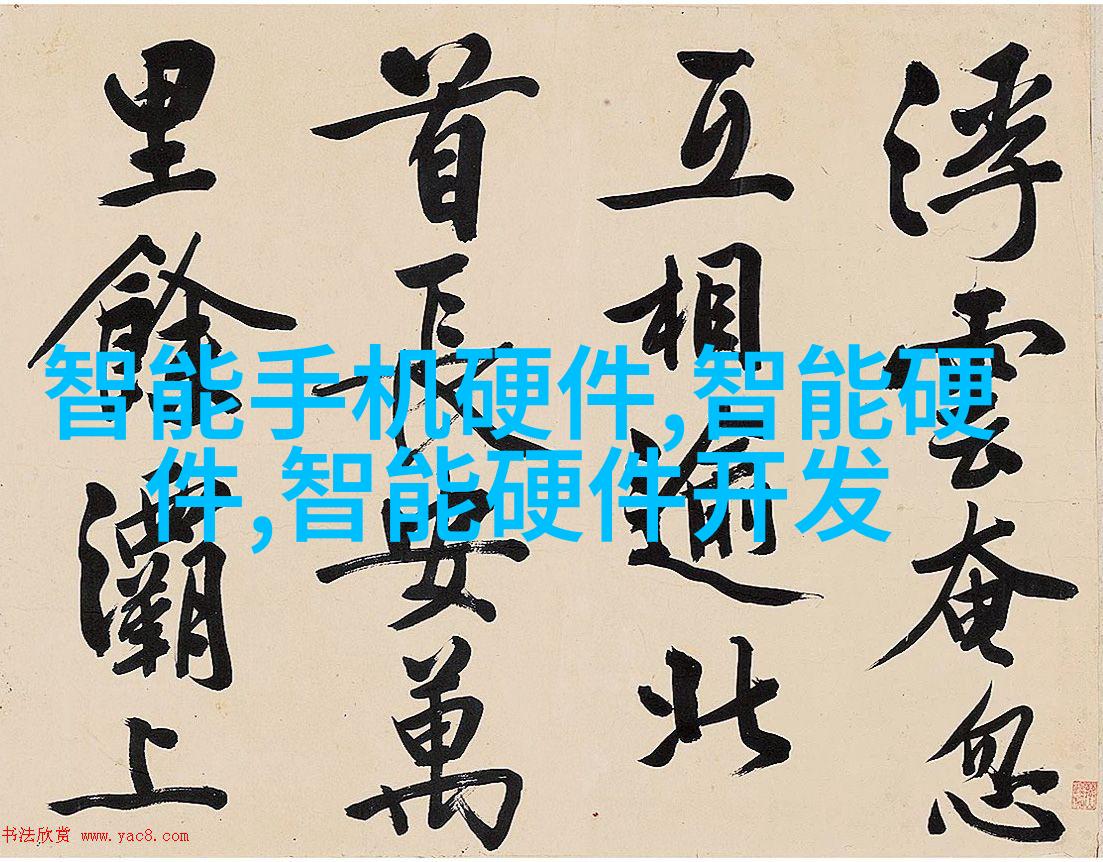 浮雲奄忽
互相逾北
首長安萬
里餘灞上
智能手机硬件,智能硬
件,智能硬件开发
书法欣赏 www.yac8.com